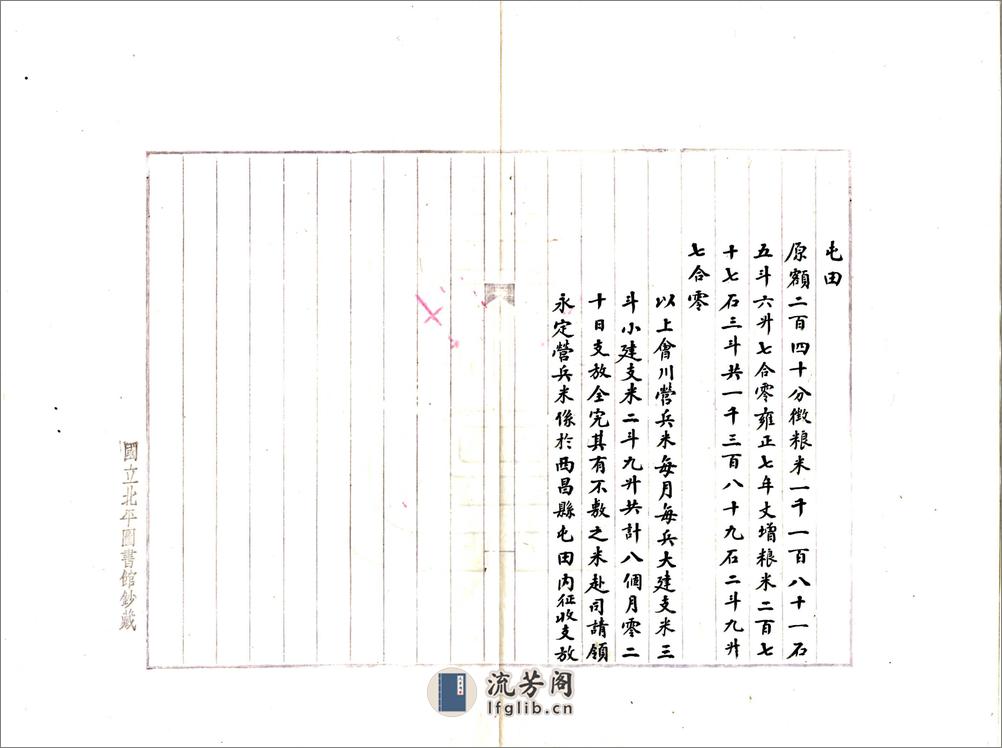 屯田
原額二百四十分徵粮米一千一百八十一石
五斗六升七合零雍正七年丈增粮米二百七
十七石三斗共一千三百八十九石二斗九升
七合零
以上會川營兵米每月每兵大建支米三
斗小建支米二斗九升共計八個月零二
十日支放全完其有不敷之米赴司請領
永定營兵米係於西昌縣屯田內征收支放
國立北平圖書館鈔藏
流芳阁
lfglib.cn